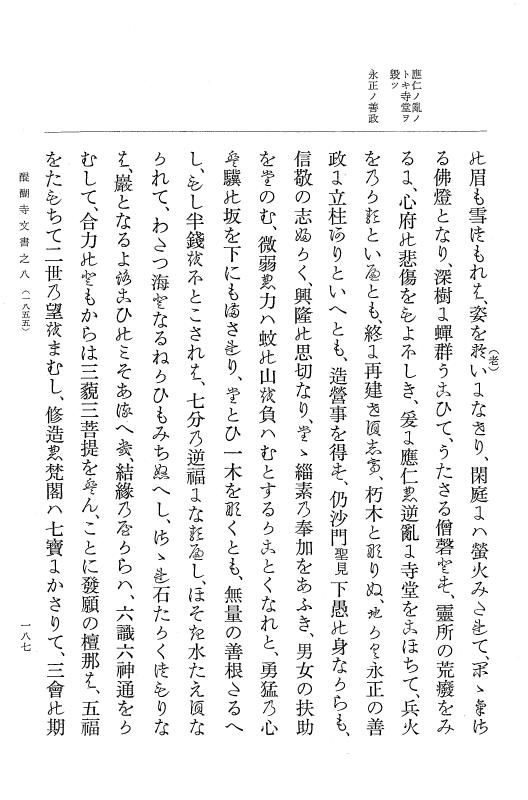 應仁ノ亂ノ
トキ寺堂ヲ
毀ツ
永正ノ善政
の眉も雪つもれは、姿をおい(老)になせり、閑庭にハ螢火みたれて、
る佛燈となり、深樹に蟬群うたひて、うたさる僧磬をそ、靈所の荒癈をみ
るに、心府の悲傷をもよほしき、爰に應仁の逆亂に寺堂をこほちて、兵火
をのかるといへとも、終に再建、朽木となりぬ、永正の善
政に立柱ありといへとも、造營事を得す、仍沙門聖見下愚の身なからも、
信敬の志ふかく、興隆の思切なり、たゝ緇素の奉加をあふき、男女の扶助
をたのむ、微弱の力ハ蚊の山を負ハむとするかことくなれと、勇猛の心
は驥の坂を下にもまさせり、たとひ一木をひくとも、無量の善根たるへ
し、もし半錢をほとこされは、七分の逆福になるへし、ほそき水たえすな
かれて、わたつ海となるねかひもみちぬへし、さゝれ石たかくつもりな
は、巖となるよろこひのみそあるへき、結緣のともからハ、六識六神通をか
むして、合力のともからは三藐三菩提をせん、ことに發願の檀那は、五福
をたもちて二世の望をまむし、修造の梵閣ハ七寶にかさりて、三會の期
醍醐寺文書之八(一八五五)
一八七